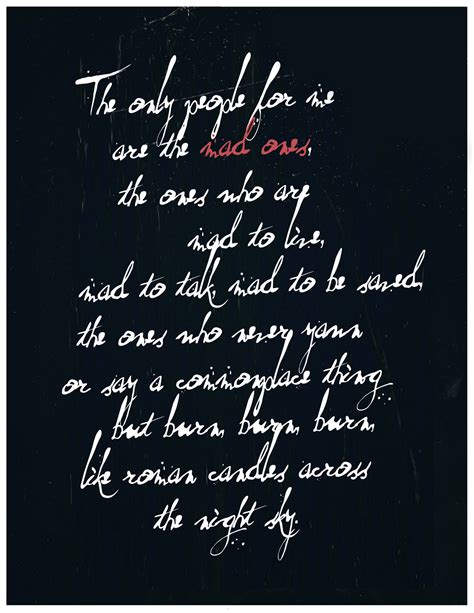 The only people for me
are the mad ones,
the ones who are
mad to live,
mad to talk, mad to be saved,
the ones who never yawn
or say a commonplace thing
but burn, burn, burn,
like roman candles across
the night sky.